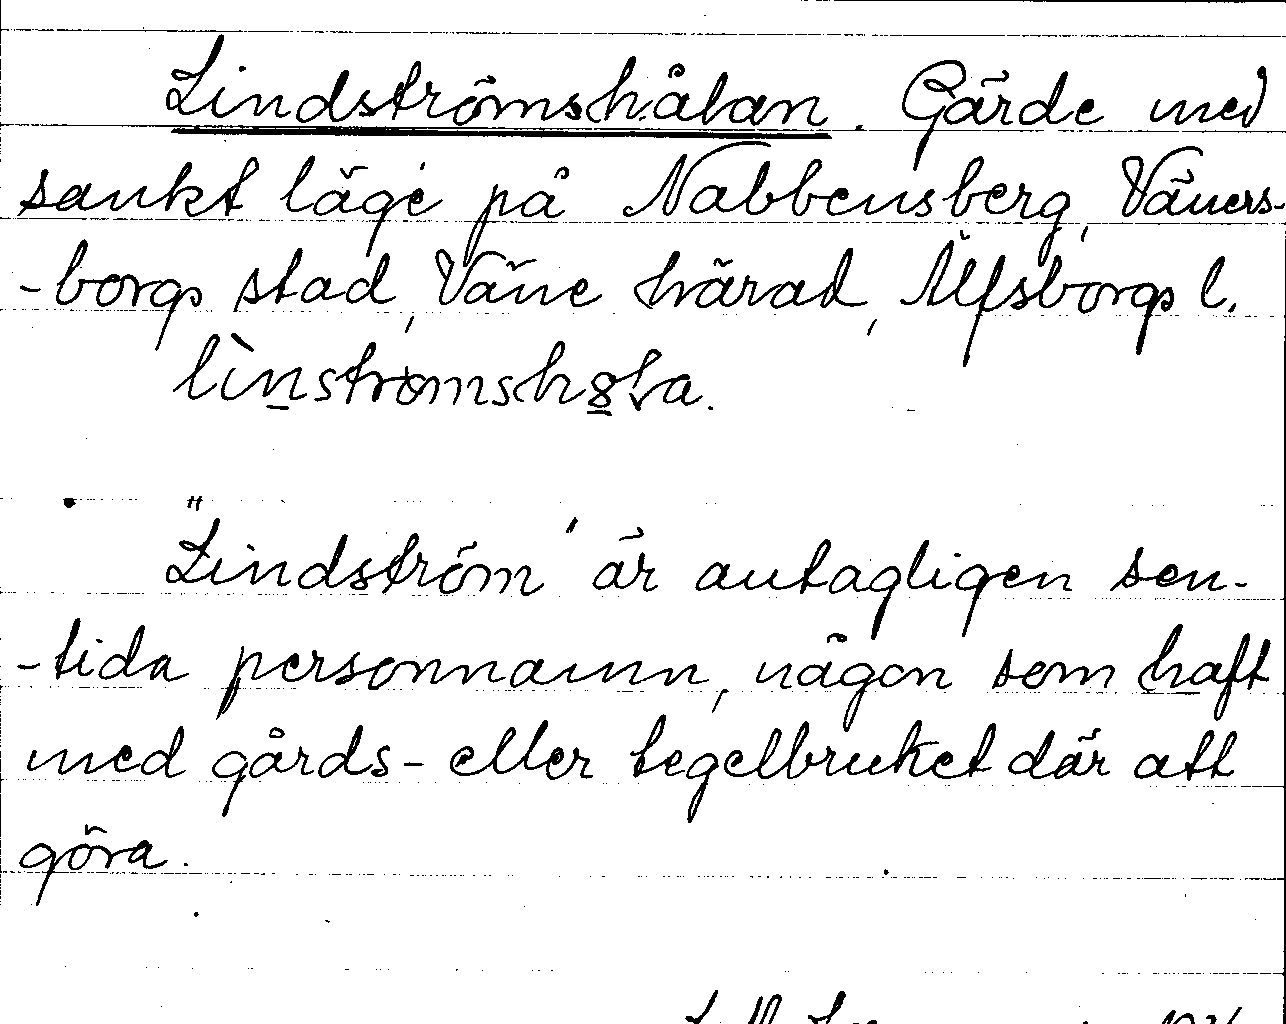 Lindströmshålan. Gärde med
sankt läge på Nabbensberg, Väners-
-borgs stad, Väne härad, Älfsborgs l.
lìn̲strömsh8̲la.
"Lindström" är antagligen sen-
-tida personnamn, någon som haft
med gårds- eller tegelbruket där att
göra.